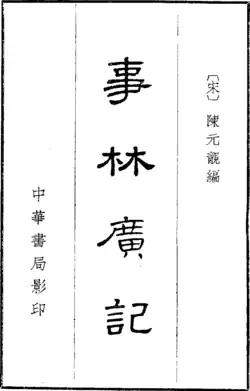 〔宋〕 陳元靚編
事林廣記
中華書局影印